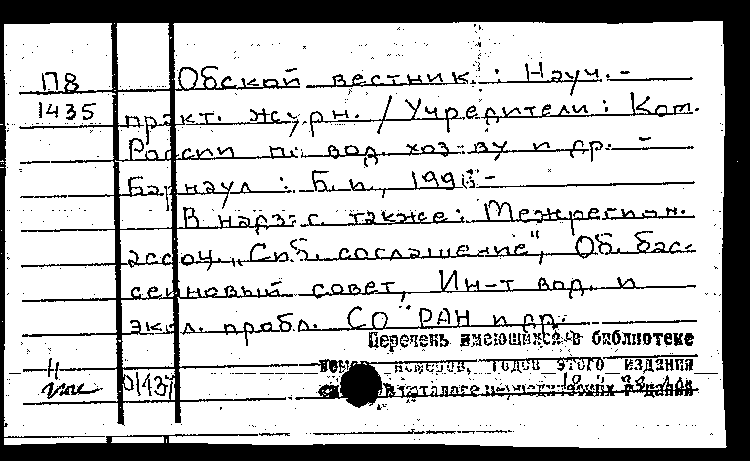 П8 Обской вестник : Науч.-
1435 практ. журн. / Учредители : Ком.
России по вод. хоз-ву и др. -
Барнаул : Б. и., 199 -
В надзаг. также : Межрегион.
ассоц. „Сиб. соглашение", Об. бас-
сейновый совет, Ин-т вод. и
экол. пробл. СО РАН и др.
Перечень имеющихся в библиотеке
номеров, годов этого издания
в каталоге периодических изданий
01437